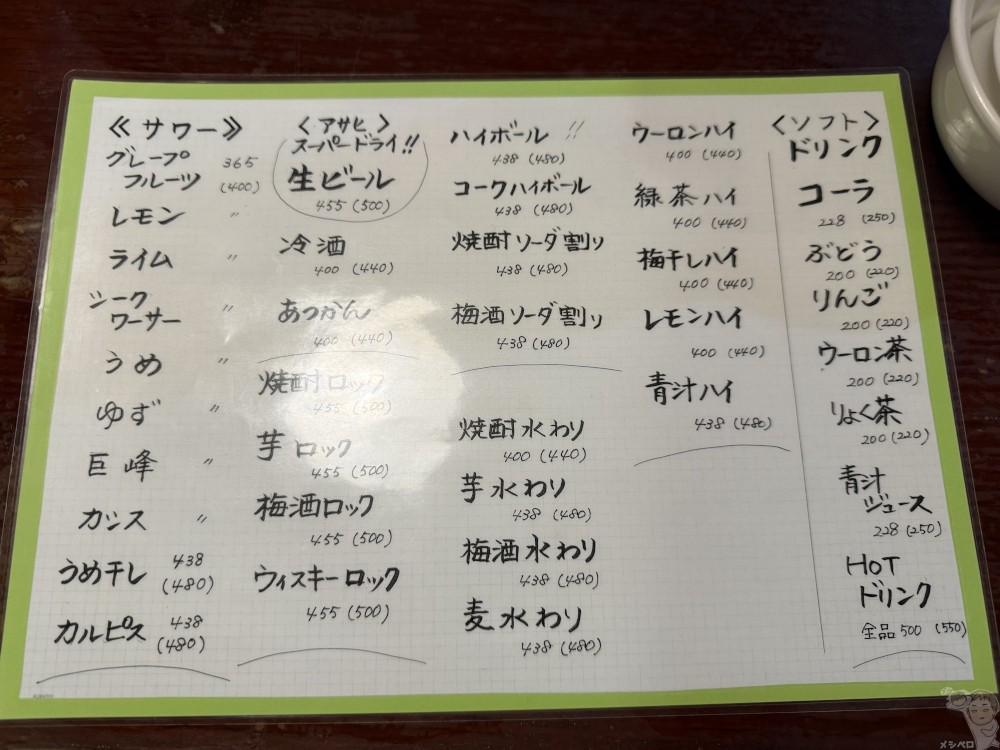 ≪サワー≫
グレープ
フルーツ 365
(400)
レモン 〃
ライム 〃
シーク
ワーサー 〃
うめ 〃
ゆず 〃
巨峰 〃
カシス 〃
うめ干し 438
(480)
カルピス 438
(480)
〈アサヒ〉
スーパードライ!!
生ビール
455 (500)
冷酒
400 (440)
あつかん
400 (440)
焼酎ロック
455 (500)
芋ロック
455 (500)
梅酒ロック
455 (500)
ウィスキーロック
455 (500)
ハイボール!!
438 (480)
コークハイボール
438 (480)
焼酎ソーダ割り
438 (480)
梅酒ソーダ割り
438 (480)
焼酎水わり
400 (440)
芋水わり
438 (480)
梅酒水わり
438 (480)
麦水わり
438 (480)
ウーロンハイ
400 (440)
緑茶ハイ
400 (440)
梅干しハイ
400 (440)
レモンハイ
400 (440)
青汁ハイ
438 (480)
〈ソフト〉
ドリンク
コーラ
228 (250)
ぶどう
200 (220)
りんご
200 (220)
ウーロン茶
200 (220)
りょく茶
200 (220)
青汁
ジュース
228 (250)
HOT
ドリンク
全品500 (550)
メシペロ